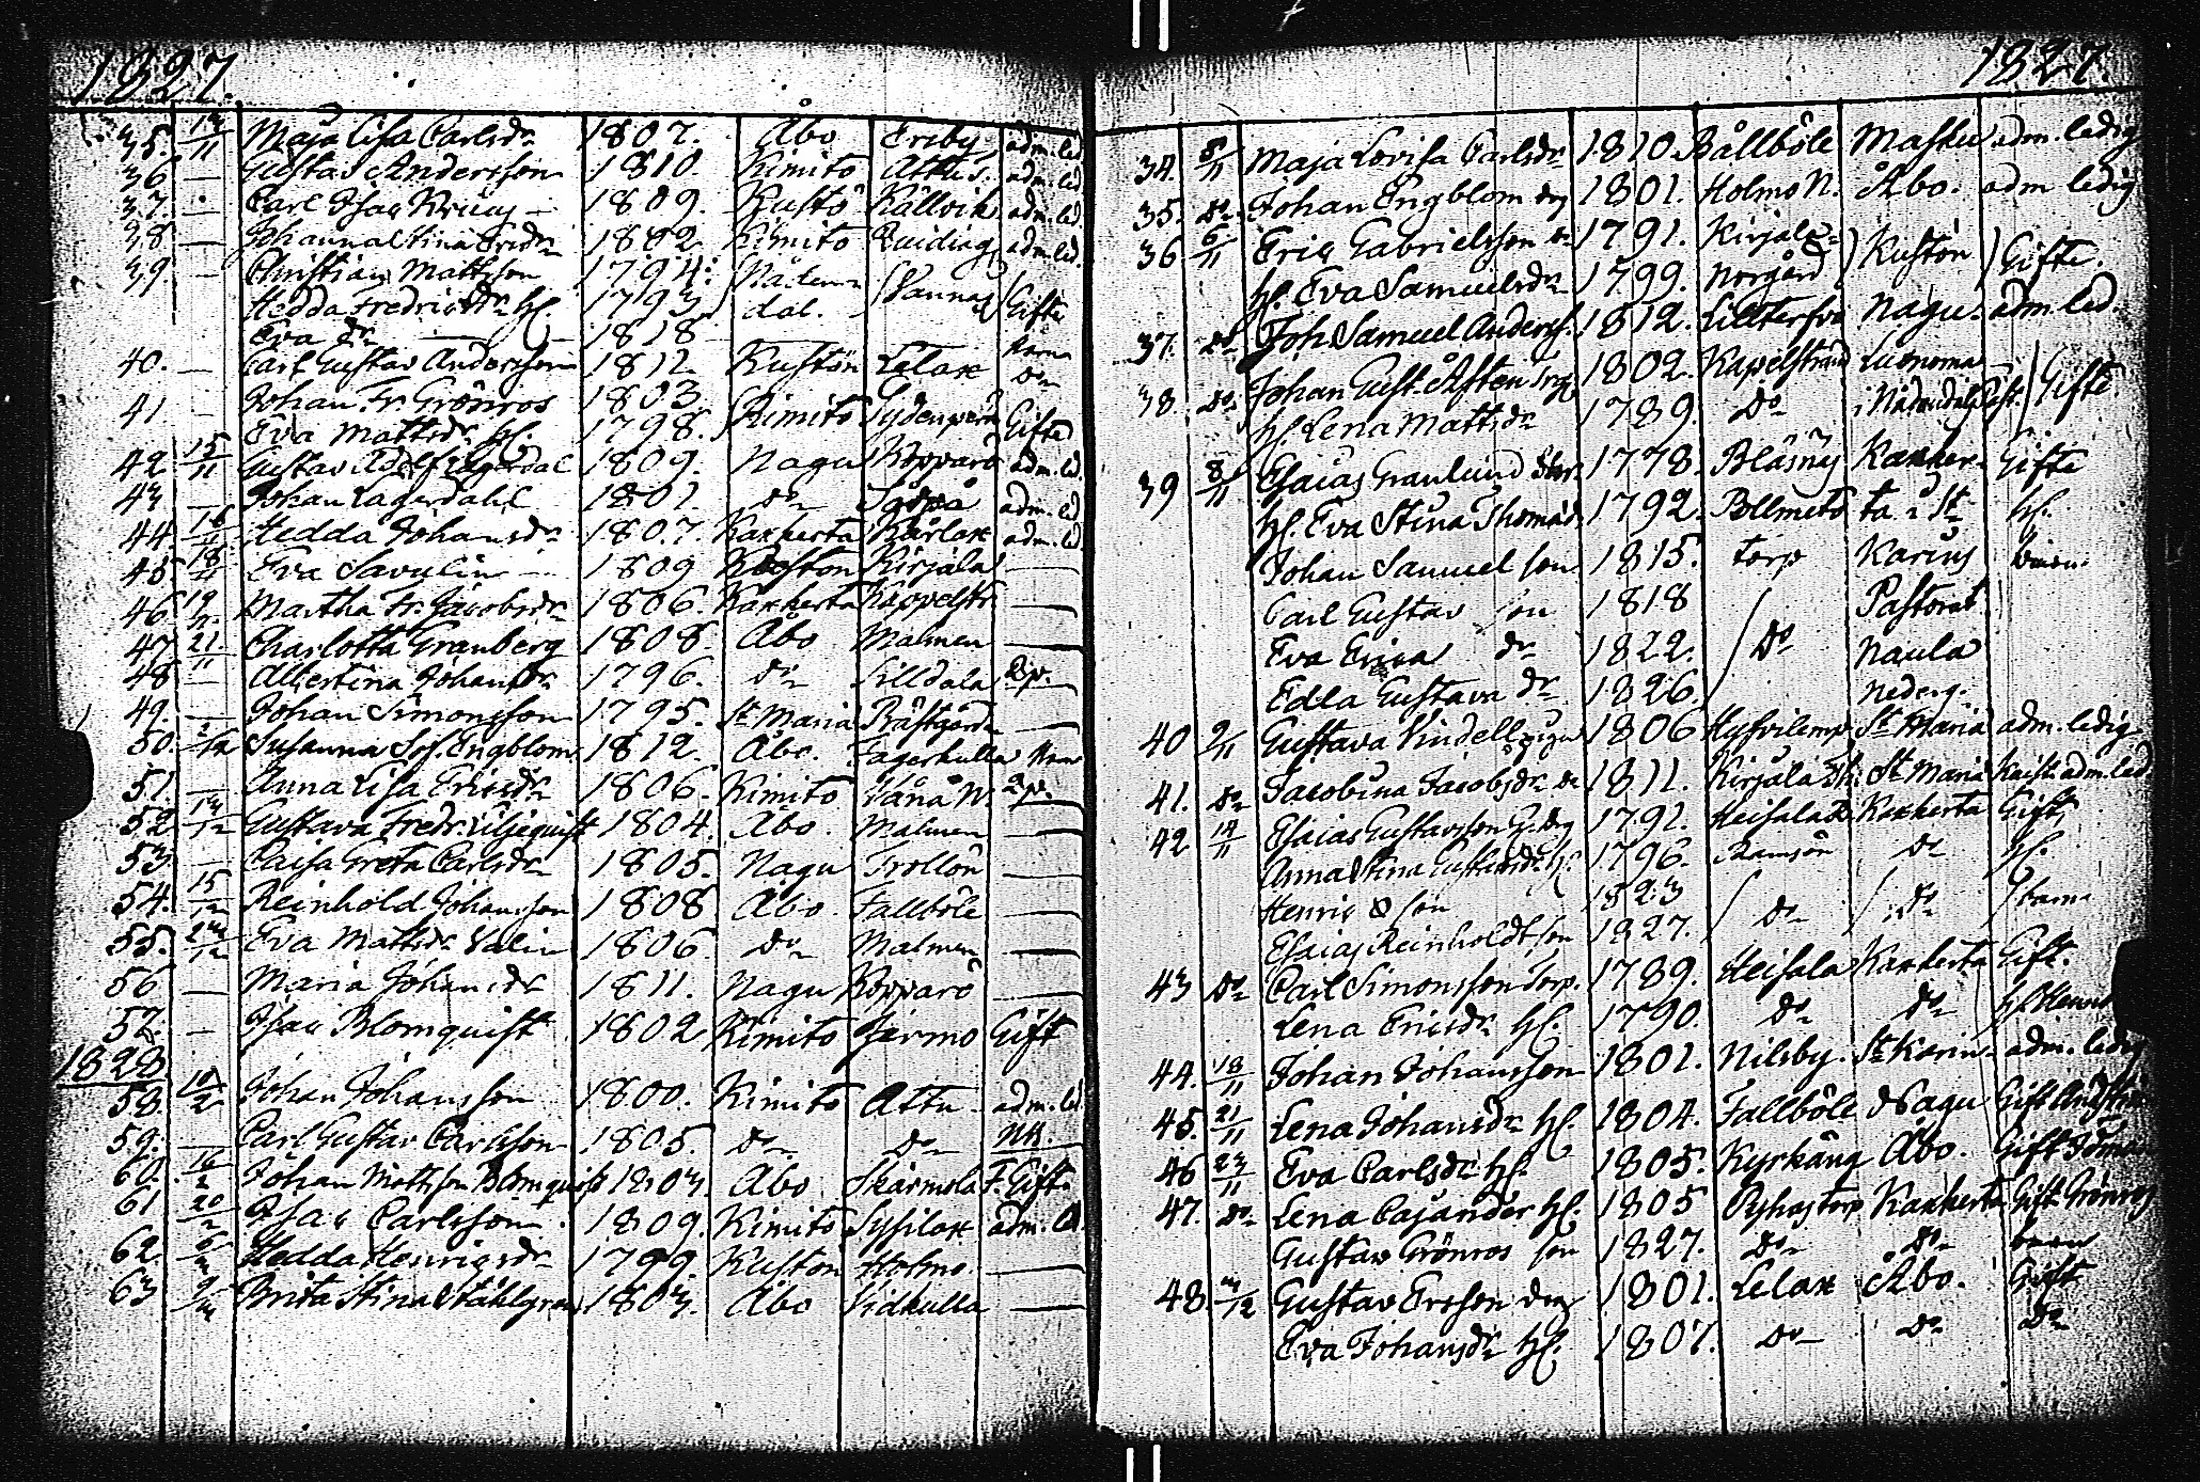 1827.
35. 13/11 Maja Lisa Carlsdr 1807. Åbo Ersby adm. led
36 — Gustaf Andersson 1810. Kimito Attu. adm. led.
37. — Carl Isac 1809. Kustö Källvik adm. led.
38 — Johanna Stina Ericsdr 1802. Kimito adm. led.
39. — Christian Mattsson 1794. Nåden
Hedda Fredricsdr hu. 1793 dal. Gifte
Eva dr — 1818 — Barn
40. — Carl Gustav Andersson 1812. Kustön Lelax Do
41 — Johan Fr. Grönros 1803 Kimito
Eva Mattsdr hu. 1798. Gifte
42 15/11 Gustav Adolf Lagerdal 1809. Nagu Kopparö adm. led.
43 — Johan Lagerdahl 1801. Do adm. led
44 16/11 Hedda Johansdr 1807. Kakskerta Kårlax adm. led
45. 18/11 Eva Savulin 1809 Kustön Kirjala —
46. 19/11 Martha Fr. Jacobsdr 1806. Kakskerta Kappelstr. —
47. 21/11 Charlotta Granberg 1808. Åbo Malmen —
48 — Albertina Johansdr 1796. Do Lilldala
49. — Johan Simonsson 1795. St Maria —
50. 2/12 Susanna Sof. Engblom 1812. Åbo. Fagerkulla
51. — Anna Lisa Ericsdr 1806. Kimito
52 13/12 Gustava Fredr. Liljequist 1804. Åbo. Malmen —
53. — Caisa Greta Carlsdr 1805. Nagu Trollön —
54. 15/12 Reinhold Johansson 1808 Åbo. Fallböle —
55. 23/12 Eva Mattsdr Valin 1806 Do Malmen —
56 — Maria Johansdr 1811. Nagu Kopparö —
57. — Isac Blomquist 1802 Kimito Jermo Gift
1828
58. 10/2 Johan Johansson 1800. Kimito Attu adm. led.
59. — Carl Gustav Carlsson 1805. Do Do
60. 16/2 Johan Mattsson Blomquist 1803. Åbo Skärmola F. Gift.
61 20/2 Isac Carlsson. 1809. Kimito Sysilax adm. led.
62. 6/3 Hedda Henricsdr 1799. Kustön Holmo. —
63 9/3 Brita Stina Ståhlgren 1803. Åbo Vidkulla —
1827.
34. 5/11 Maja Lovisa Carlsdr 1810. Bållböle Masku adm. ledig
35. Do Johan Engblom drg 1801. Holmo N. Åbo. adm ledig
36. 6/11 Eric Gabrielsson 1791. Kirjala
hu. Eva Samuelsdr 1799. Norgård Kustön Gifte.
37. Do Joh Samuel Anderss. 1812. Nagu. adm. led.
38. Do Johan Gust. 1802. Kapelstrand Luonoma
hu. Lena Mattsdr 1789. Do i Nådendal Gifte
39 8/11 Esaias Granlund 1778. Kakskerta Gifte
hu. Eva Stina Thomasd. 1792. ta i St hu.
Johan Samuel son 1815. torp Karins barn.
Carl Gustav son 1818 Pastorat
Eva Erica dr 1822. Do Naula
Edla Gustava dr 1826. nederg.
40 9/11 Gustava Vindell piga 1806 St Maria adm. ledig
41. Do Jacobina Jacobsdr 1811. Kirjala St. Maria adm. led.
42 12/11 Esaias Gustavsson 1791. Heisala Kakskerta Gift
Anna Stina Gustavsdr hu. 1796. Ramsön Do hu.
Henric son 1823
Esaias Reinholdt son 1827. Do Do barn
43 Do Carl Simonsson Torp. 1789. Heisala Kakskerta Gift.
Lena Ericsdr hu. 1790. Do Do
44. 13/11 Johan Johansson 1801. Nilsby. St Karin adm. ledig
45. 21/11 Lena Johansdr hu. 1804. Fallböle Nagu Gift
46 23/11 Eva Carlsdr hu. 1805. Kyrkäng Åbo. Gift
47. Do Lena Cajander hu. 1805 Kakskerta Gift Grönros
Gustav Grönros son 1827. Do Do barn
48. 3/12 Gustav Ersson drg 1801. Lelax Åbo. Gift
Eva Johansdr hu. 1807. Do Do Do